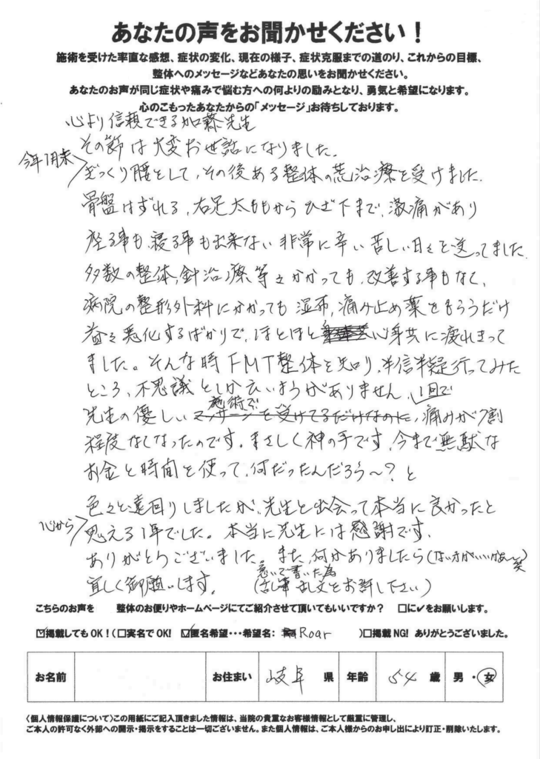 あなたの声をお聞かせください！
施術を受けた率直な感想、症状の変化、現在の様子、症状克服までの道のり、これからの目標、
整体へのメッセージなどあなたの思いをお聞かせください。
あなたのお声が同じ症状や痛みで悩む方への何よりの励みとなり、勇気と希望になります。
心のこもったあなたからの「メッセージ」お待ちしております。
心より信頼できる加藤先生
その節は大変お世話になりました。
今年1月末
ぎっくり腰をして、その後ある整体の荒治療を受けました。
骨盤はずれる、右足太ももからひざ下まで、激痛があり
座る事も、寝る事も出来ない非常に辛い苦しい日々を送ってました。
多数の整体、針治療等々かかっても、改善する事もなく、
病院の整形外科にかかっても湿布、痛み止め薬をもらうだけ
益々悪化するばかりで、ほとほと心身共に疲れきって
ました。そんな時FMT整体を知り、半信半疑行ってみた
ところ、不思議としか云いようがありません、1回で
先生の優しい施術で、痛みが7割
程度なくなったのです。まさしく神の手です、今まで無駄な
お金と時間を使って、何だったんだろう〜？と
色々と遠回りしましたが、先生と出会って本当に良かったと
心から
思える1年でした。本当に先生には感謝です。
ありがとうございました。また、何かありましたら(ない方がいいかな〜)笑
宜しく御願いします。
急いで書いた為
(乱筆乱文をお許し下さい)
こちらのお声を 整体のお便りやホームページにてご紹介させて頂いてもいいですか？ □に✔をお願いします。
☑掲載してもOK！(□実名でOK! ☑匿名希望・・・希望名: Roar )□掲載NG! ありがとうございました。
お名前 お住まい 岐阜 県 年齢 54 歳 男・女
〈個人情報保護について〉この用紙にご記入頂きました情報は、当院の貴重なお客様情報として厳重に管理し、
ご本人の許可なく外部への開示・掲示をすることは一切ございません。また個人情報は、ご本人様からのお申し出により訂正・削除いたします。